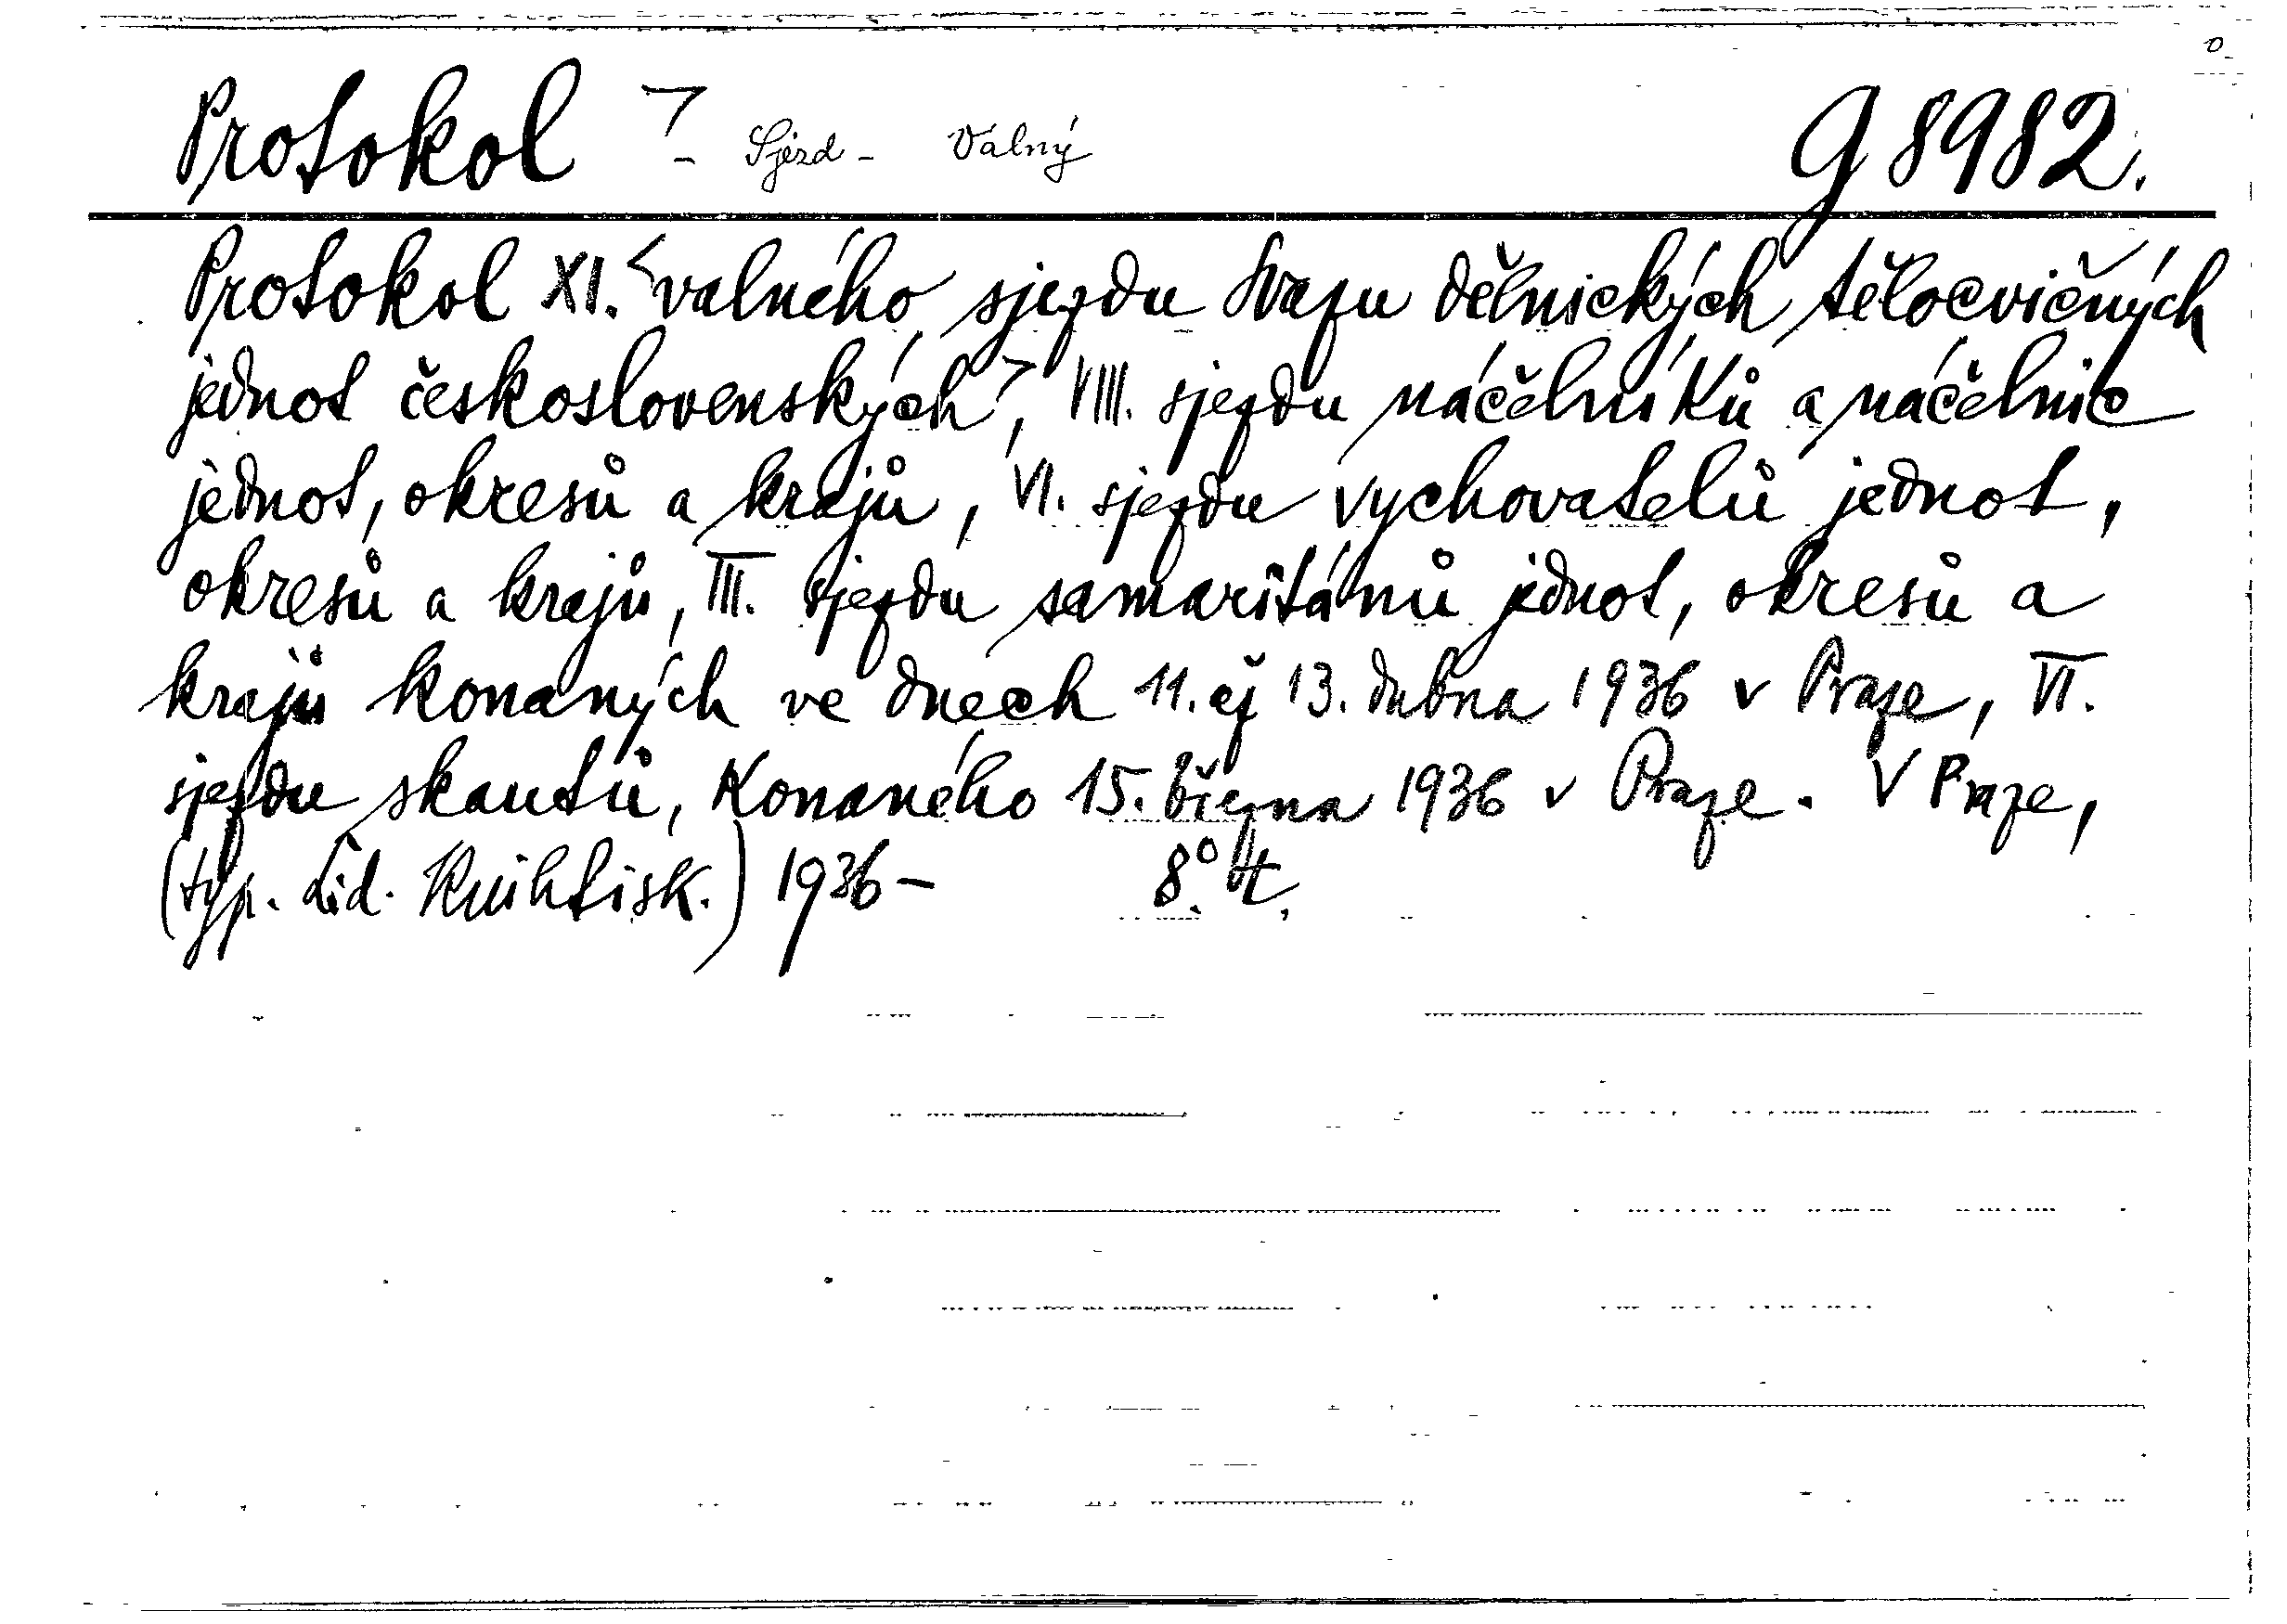 Protokol - Sjezd - Valný g 8982.
Protokol XI. valného sjezdu Svazu dělnických tělocvičných
jednot československých, VIII. sjezdu náčelníků a náčelnic
jednot, okresů a krajů, VI. sjezdu vychovatelů jednot,
okresů a krajů, III. sjezdu samaritánů jednot, okresů a
krajů konaných ve dnech 11. až 13. dubna 1936 v Praze, VI.
sjezdu skautů, konaného 15. března 1936 v Praze. V Praze,
(typ. Lid. knihtisk.) 1936 - 8°. t.